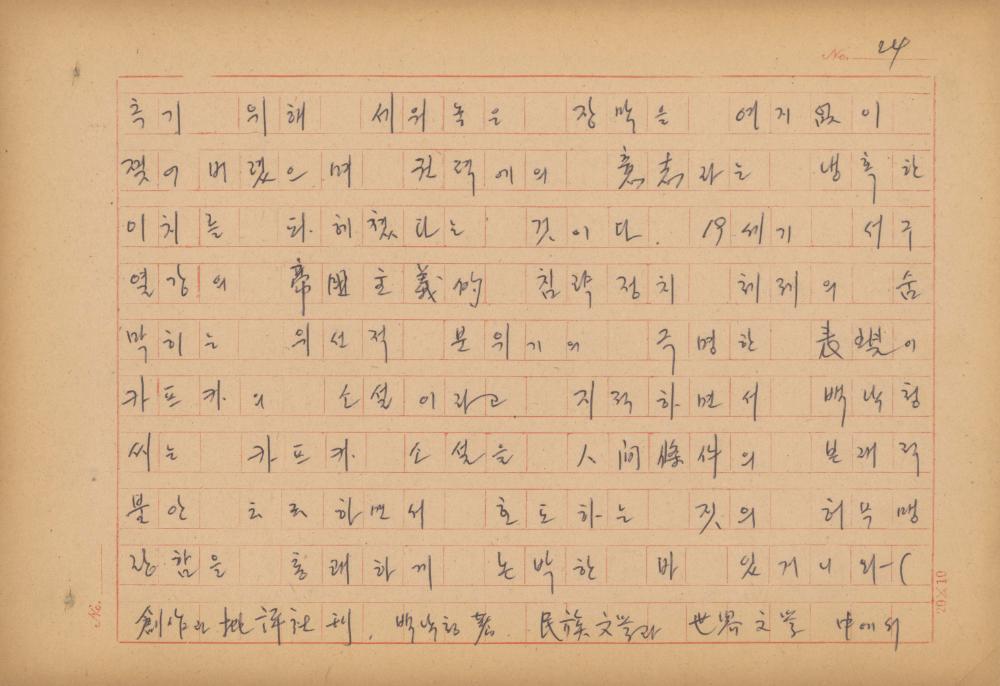 No. 24
흑기 위해 세워놓은 장막을 여지없이
찢어 버렸으며 권력에의 意志라는 냉혹한
이치를 파헤쳤다는 것이다. 19세기 서구
열강의 帝國主義的 침략정치 체제의 숨
막히는 위선적 분위기의 극명한 表現이
카프카의 소설이라고 지적하면서 백낙청
씨는 카프카 소설을 人間條件의 본래적
불안 云云하면서 호도하는 짓의 허무맹
랑함을 통쾌하게 논박한 바 있거니와―(
創作과批評社刊, 백낙청著. 民族文学과 世界文学 中에서
No.
20×10